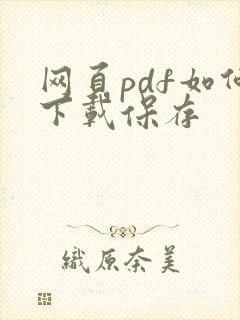 网页pdf如何
下载保存
織原奈美